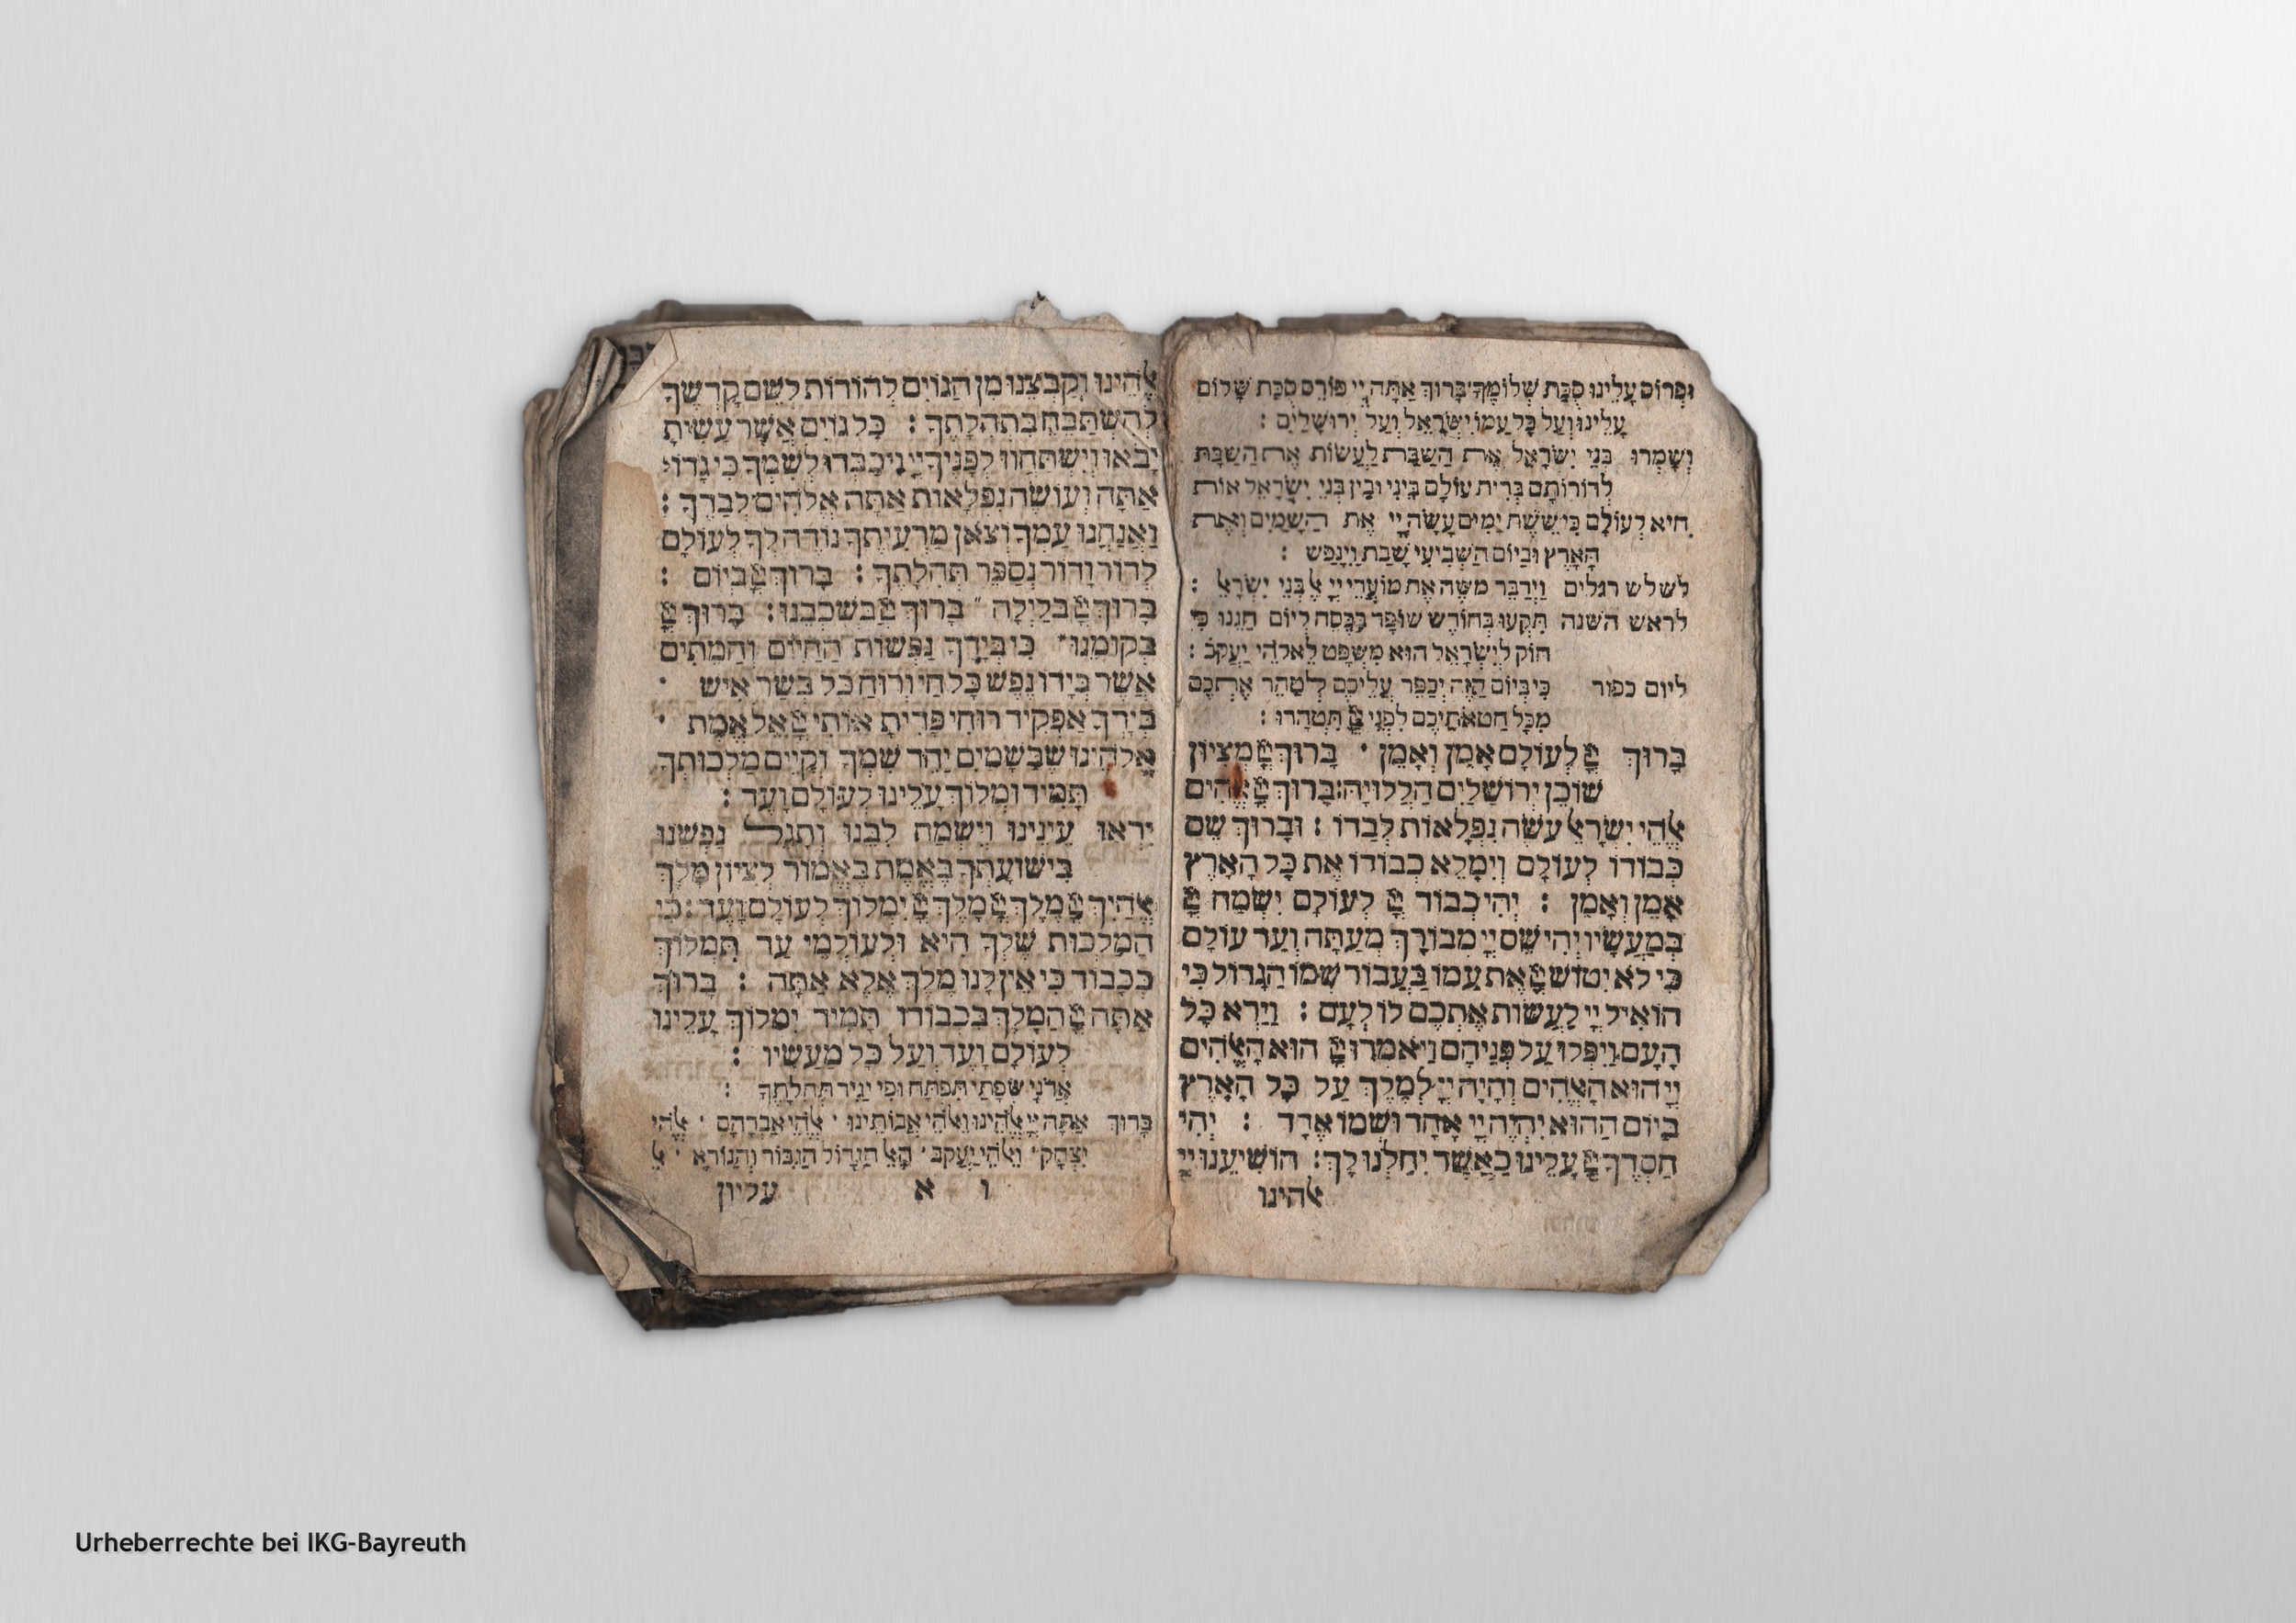 וּפְרוֹס עָלֵינוּ סֻכַּת שְׁלוֹמֶךָ בָּרוּךְ אַתָּה יְיָ פּוֹרֵס סֻכַּת שָׁלוֹם
עָלֵינוּ וְעַל כָּל עַמּוֹ יִשְׂרָאֵל וְעַל יְרוּשָׁלַיִם :
וְשָׁמְרוּ בְּנֵי יִשְׂרָאֵל אֶת הַשַּׁבָּת לַעֲשׂוֹת אֶת הַשַּׁבָּת
לְדוֹרוֹתָם בְּרִית עוֹלָם בֵּינִי וּבֵין בְּנֵי יִשְׂרָאֵל אוֹת
הִיא לְעוֹלָם כִּי שֵׁשֶׁת יָמִים עָשָׂה יְיָ אֶת הַשָּׁמַיִם וְאֶת
הָאָרֶץ וּבַיּוֹם הַשְּׁבִיעִי שָׁבַת וַיִּנָּפַשׁ :
לשלש רגלים וַיְדַבֵּר משֶׁה אֶת מוֹעֲדֵי יְיָ אֶל בְּנֵי יִשְׂרָאֵל :
לראש השנה תִּקְעוּ בְחוֹדֶשׁ שׁוֹפָר בַּכֶּסֶה לְיוֹם חַגֵּנוּ כִּי
חוֹק לְיִשְׂרָאֵל הוּא מִשְׁפָּט לֵאלֹהֵי יַעֲקֹב :
ליום כפור כִּי בַיּוֹם הַזֶּה יְכַפֵּר עֲלֵיכֶם לְטַהֵר אֶתְכֶם
מִכָּל חַטֹּאתֵיכֶם לִפְנֵי יְיָ תִּטְהָרוּ :
בָּרוּךְ יְיָ לְעוֹלָם אָמֵן וְאָמֵן · בָּרוּךְ יְיָ מִצִּיּוֹן
שׁוֹכֵן יְרוּשָׁלַיִם הַלְלוּיָהּ : בָּרוּךְ יְיָ אֱלֹהִים
אֱלֹהֵי יִשְׂרָאֵל עֹשֵׂה נִפְלָאוֹת לְבַדּוֹ : וּבָרוּךְ שֵׁם
כְּבוֹדוֹ לְעוֹלָם וְיִמָּלֵא כְבוֹדוֹ אֶת כָּל הָאָרֶץ
אָמֵן וְאָמֵן : יְהִי כְבוֹד יְיָ לְעוֹלָם יִשְׂמַח יְיָ
בְּמַעֲשָׂיו יְהִי שֵׁם יְיָ מְבוֹרָךְ מֵעַתָּה וְעַד עוֹלָם
כִּי לֹא יִטּוֹשׁ יְיָ אֶת עַמּוֹ בַּעֲבוּר שְׁמוֹ הַגָּדוֹל כִּי
הוֹאִיל יְיָ לַעֲשׂוֹת אֶתְכֶם לוֹ לְעָם : וַיַּרְא כָּל
הָעָם וַיִּפְּלוּ עַל פְּנֵיהֶם וַיֹּאמְרוּ יְיָ הוּא הָאֱלֹהִים
יְיָ הוּא הָאֱלֹהִים וְהָיָה יְיָ לְמֶלֶךְ עַל כָּל הָאָרֶץ
בַּיּוֹם הַהוּא יִהְיֶה יְיָ אֶחָד וּשְׁמוֹ אֶחָד : יְהִי
חַסְדְּךָ יְיָ עָלֵינוּ כַּאֲשֶׁר יִחַלְנוּ לָךְ : הוֹשִׁיעֵנוּ יְיָ
אלהינו
אֱלֹהֵינוּ וְקַבְּצֵנוּ מִן הַגּוֹיִם לְהוֹדוֹת לְשֵׁם קָדְשֶׁךָ
לְהִשְׁתַּבֵּחַ בִּתְהִלָּתֶךָ : כָּל גּוֹיִם אֲשֶׁר עָשִׂיתָ
יָבֹאוּ וְיִשְׁתַּחֲווּ לְפָנֶיךָ יְיָ וִיכַבְּדוּ לִשְׁמֶךָ כִּי גָדוֹל
אַתָּה וְעוֹשֵׂה נִפְלָאוֹת אַתָּה אֱלֹהִים לְבַדֶּךָ :
וַאֲנַחְנוּ עַמְּךָ וְצֹאן מַרְעִיתֶךָ נוֹדֶה לְּךָ לְעוֹלָם
לְדוֹר וָדוֹר נְסַפֵּר תְּהִלָּתֶךָ : בָּרוּךְ יְיָ בַּיּוֹם :
בָּרוּךְ יְיָ בַּלַּיְלָה " בָּרוּךְ יְיָ בְּשָׁכְבֵנוּ : בָּרוּךְ יְיָ
בְּקוּמֵנוּ · כִּי בְיָדְךָ נַפְשׁוֹת הַחַיִּים וְהַמֵּתִים
אֲשֶׁר בְּיָדוֹ נֶפֶשׁ כָּל חָי וְרוּחַ כָּל בְּשַׂר אִישׁ ·
בְּיָדְךָ אַפְקִיד רוּחִי פָּדִיתָ אוֹתִי יְיָ אֵל אֱמֶת ·
אֱלֹהֵינוּ שֶׁבַּשָּׁמַיִם יַחֵד שִׁמְךָ וְקַיֵּים מַלְכוּתְךָ
תָּמִיד וּמְלוֹךְ עָלֵינוּ לְעוֹלָם וָעֶד :
יִרְאוּ עֵינֵינוּ וְיִשְׂמַח לִבֵּנוּ וְתָגֵל נַפְשֵׁנוּ
בִּישׁוּעָתְךָ בֶּאֱמֶת בֶּאֱמוֹר לְצִיּוֹן מָלַךְ
אֱלֹהָיִךְ יְיָ מֶלֶךְ יְיָ מָלָךְ יְיָ יִמְלוֹךְ לְעוֹלָם וָעֶד : כִּי
הַמַּלְכוּת שֶׁלְּךָ הִיא וּלְעוֹלְמֵי עַד תִּמְלוֹךְ
בְּכָבוֹד כִּי אֵין לָנוּ מֶלֶךְ אֶלָּא אַתָּה : בָּרוּךְ
אַתָּה יְיָ הַמֶּלֶךְ בִּכְבוֹדוֹ תָּמִיד יִמְלוֹךְ עָלֵינוּ
לְעוֹלָם וָעֶד וְעַל כָּל מַעֲשָׂיו :
אֲדֹנָי שְׂפָתַי תִּפְתָּח וּפִי יַגִּיד תְּהִלָּתֶךָ :
בָּרוּךְ אַתָּה יְיָ אֱלֹהֵינוּ וֵאלֹהֵי אֲבוֹתֵינוּ · אֱלֹהֵי אַבְרָהָם · אֱלֹהֵי
יִצְחָק · וֵאלֹהֵי יַעֲקֹב · הָאֵל הַגָּדוֹל הַגִּבּוֹר וְהַנּוֹרָא · אֵל
ו א עליון
Urheberrechte bei IKG-Bayreuth